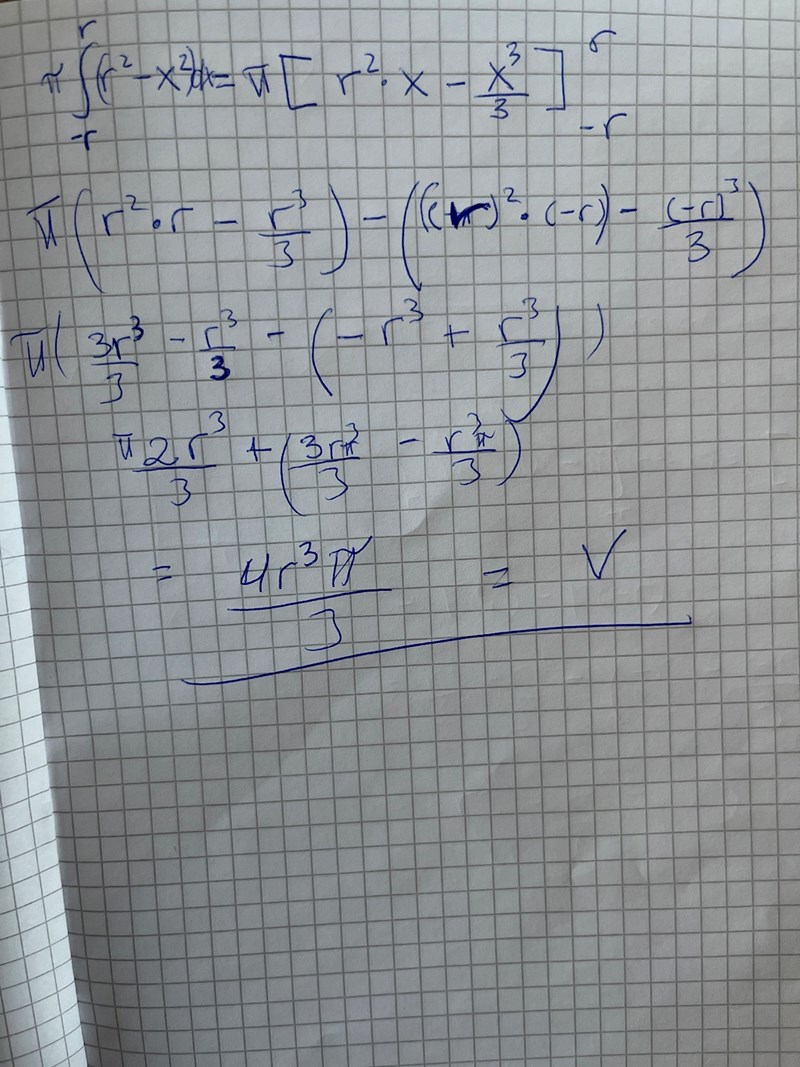 π∫_{-r}^{r}(r²-x²)dx = π[r²·x - x³/3]_{-r}^{r}
π(r²·r - r³/3) - (((-r)²·(-r)) - (-r)³/3)
π(3r³/3 - r³/3 - (-r³ + r³/3))
π 2r³/3 + (3r³π/3 - r³π/3)
= 4r³π/3 = V